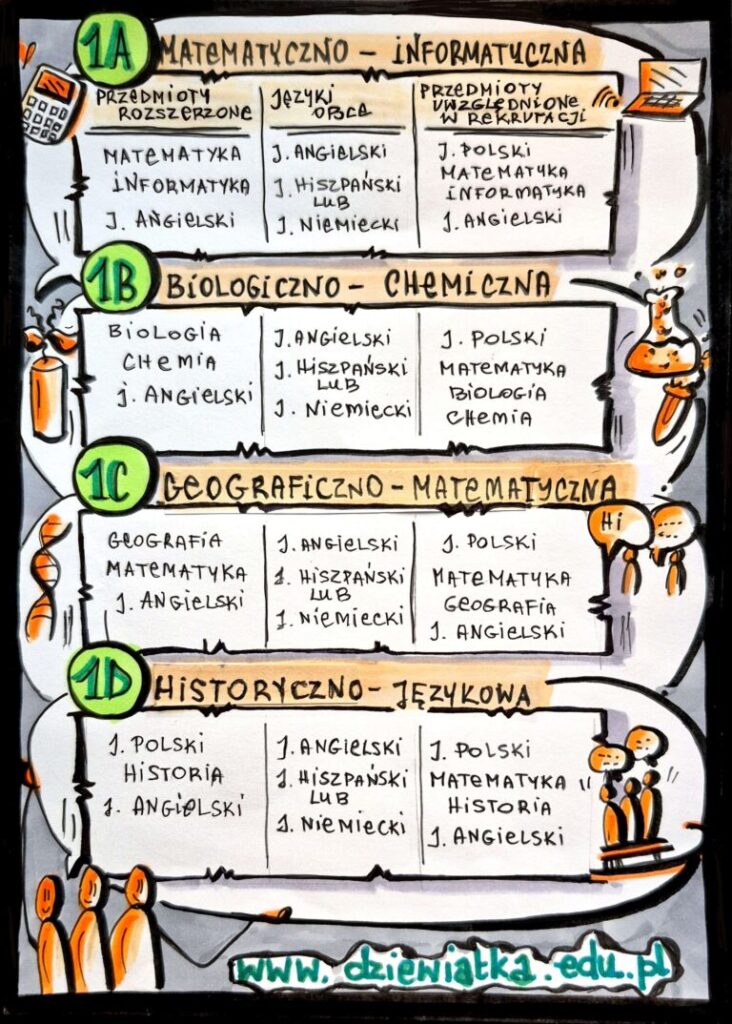 1A MATEMATYCZNO - INFORMATYCZNA
PRZEDMIOTY
ROZSZERZONE
JĘZYKI
OBCE
PRZEDMIOTY
UWZGLĘDNIONE
W REKRUTACJI
MATEMATYKA
INFORMATYKA
J. ANGIELSKI
J. ANGIELSKI
J. HISZPAŃSKI
LUB
J. NIEMIECKI
J. POLSKI
MATEMATYKA
INFORMATYKA
J. ANGIELSKI
1B BIOLOGICZNO - CHEMICZNA
BIOLOGIA
CHEMIA
J. ANGIELSKI
J. ANGIELSKI
J. HISZPAŃSKI
LUB
J. NIEMIECKI
J. POLSKI
MATEMATYKA
BIOLOGIA
CHEMIA
1C GEOGRAFICZNO - MATEMATYCZNA
GEOGRAFIA
MATEMATYKA
J. ANGIELSKI
J. ANGIELSKI
J. HISZPAŃSKI
LUB
J. NIEMIECKI
J. POLSKI
MATEMATYKA
GEOGRAFIA
J. ANGIELSKI
Hi
1D HISTORYCZNO - JĘZYKOWA
J. POLSKI
HISTORIA
J. ANGIELSKI
J. ANGIELSKI
J. HISZPAŃSKI
LUB
J. NIEMIECKI
J. POLSKI
MATEMATYKA
HISTORIA
J. ANGIELSKI
www.dziewiatka.edu.pl